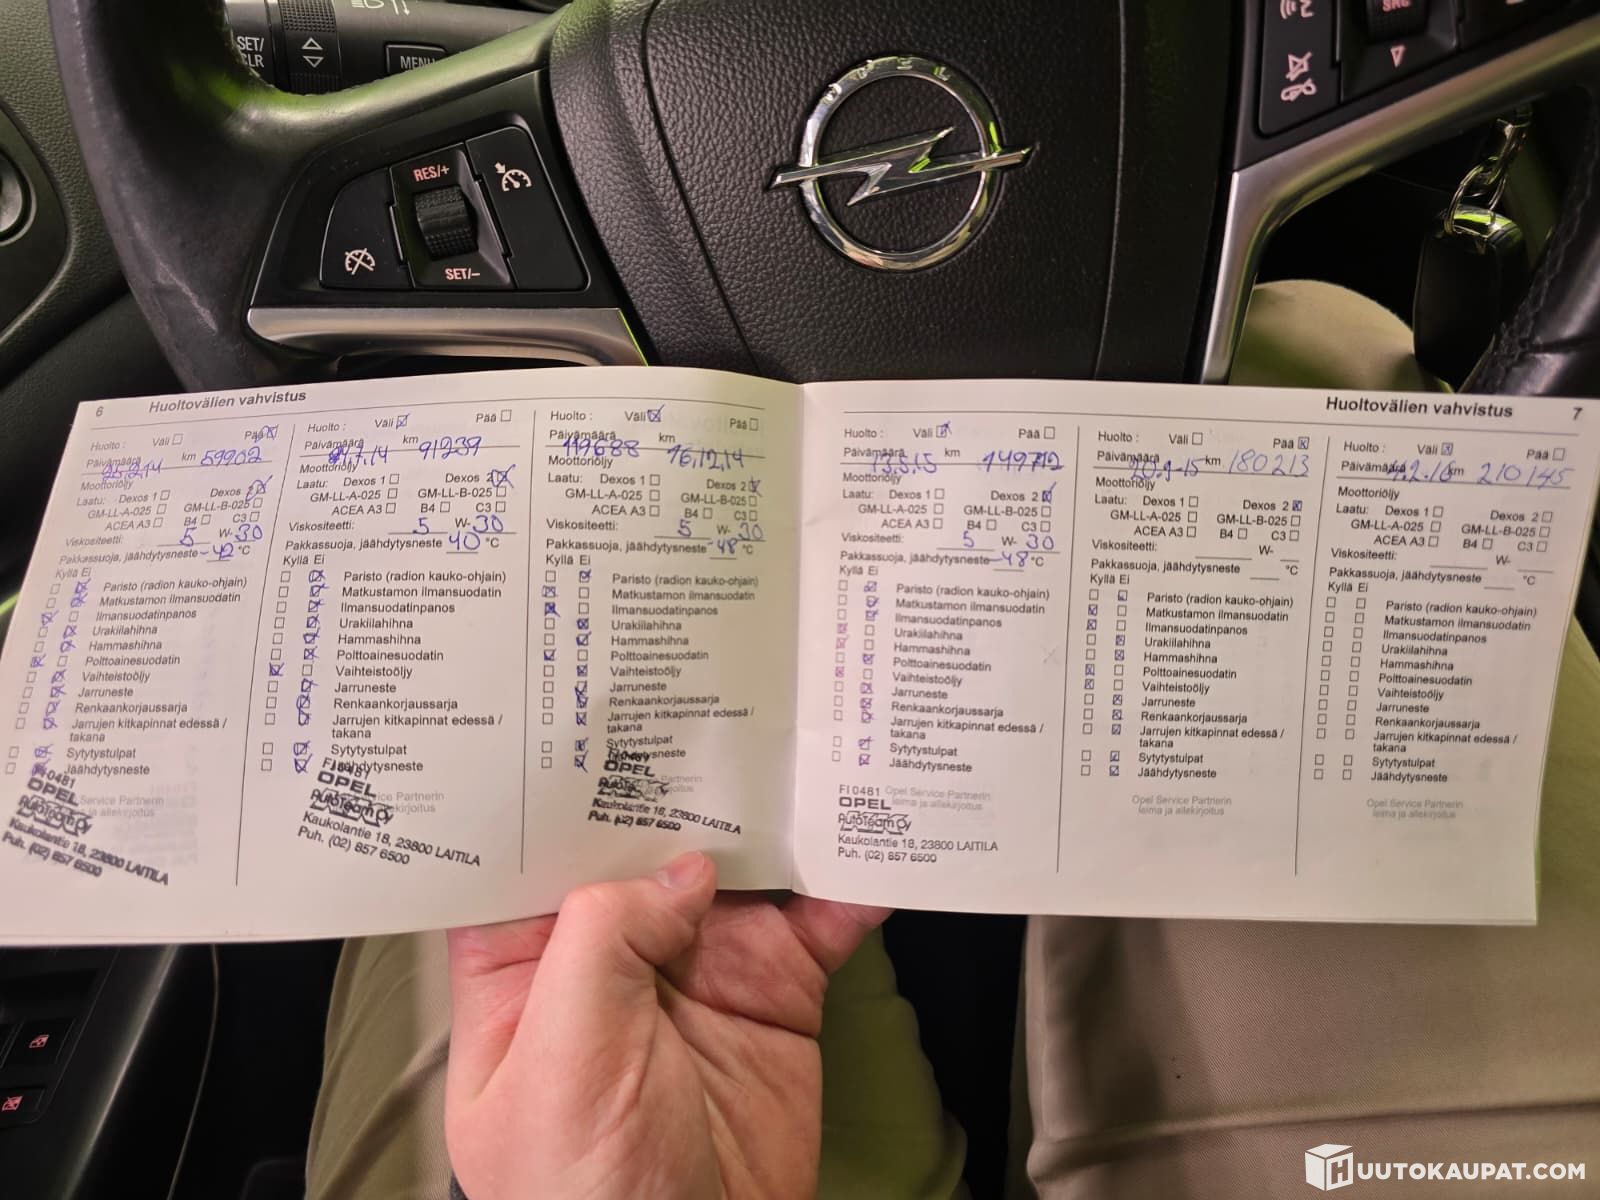 SET/
CLR
MENU
RES/+
SET/–
OPEL
6 Huoltovälien vahvistus
Huolto : Väli Pää
Päivämäärä km 59902
Moottoriöljy
Laatu: Dexos 1 Dexos 2
GM-LL-A-025 GM-LL-B-025
ACEA A3 B4 C3
Viskositeetti: 5 W- 30
Pakkassuoja, jäähdytysneste -42 °C
Kyllä Ei
Paristo (radion kauko-ohjain)
Matkustamon ilmansuodatin
Ilmansuodatinpanos
Urakiilahihna
Hammashihna
Polttoainesuodatin
Vaihteistoöljy
Jarruneste
Renkaankorjaussarja
Jarrujen kitkapinnat edessä /
takana
Sytytystulpat
Jäähdytysneste
FI0481
OPEL
AutoTeam Oy
Kaukolantie 18, 23800 LAITILA
Puh. (02) 857 6500
Huolto : Väli Pää
Päivämäärä km 91239
7.14
Moottoriöljy
Laatu: Dexos 1 Dexos 2
GM-LL-A-025 GM-LL-B-025
ACEA A3 B4 C3
Viskositeetti: 5 W- 30
Pakkassuoja, jäähdytysneste 40 °C
Kyllä Ei
Paristo (radion kauko-ohjain)
Matkustamon ilmansuodatin
Ilmansuodatinpanos
Urakiilahihna
Hammashihna
Polttoainesuodatin
Vaihteistoöljy
Jarruneste
Renkaankorjaussarja
Jarrujen kitkapinnat edessä /
takana
Sytytystulpat
Jäähdytysneste
FI0481
OPEL
AutoTeam Oy
Kaukolantie 18, 23800 LAITILA
Puh. (02) 857 6500
Huolto : Väli Pää
Päivämäärä km
119688 16.12.14
Moottoriöljy
Laatu: Dexos 1 Dexos 2
GM-LL-A-025 GM-LL-B-025
ACEA A3 B4 C3
Viskositeetti: 5 W- 30
Pakkassuoja, jäähdytysneste -48 °C
Kyllä Ei
Paristo (radion kauko-ohjain)
Matkustamon ilmansuodatin
Ilmansuodatinpanos
Urakiilahihna
Hammashihna
Polttoainesuodatin
Vaihteistoöljy
Jarruneste
Renkaankorjaussarja
Jarrujen kitkapinnat edessä /
takana
Sytytystulpat
Jäähdytysneste
FI0481
OPEL
AutoTeam Oy
Kaukolantie 18, 23800 LAITILA
Puh. (02) 857 6500
Huoltovälien vahvistus 7
Huolto : Väli Pää
Päivämäärä km
13.5.15 149712
Moottoriöljy
Laatu: Dexos 1 Dexos 2
GM-LL-A-025 GM-LL-B-025
ACEA A3 B4 C3
Viskositeetti: 5 W- 30
Pakkassuoja, jäähdytysneste -48 °C
Kyllä Ei
Paristo (radion kauko-ohjain)
Matkustamon ilmansuodatin
Ilmansuodatinpanos
Urakiilahihna
Hammashihna
Polttoainesuodatin
Vaihteistoöljy
Jarruneste
Renkaankorjaussarja
Jarrujen kitkapinnat edessä /
takana
Sytytystulpat
Jäähdytysneste
Opel Service Partnerin
leima ja allekirjoitus
FI0481
OPEL
AutoTeam Oy
Kaukolantie 18, 23800 LAITILA
Puh. (02) 857 6500
Huolto : Väli Pää
Päivämäärä km 180213
9-15
Moottoriöljy
Laatu: Dexos 1 Dexos 2
GM-LL-A-025 GM-LL-B-025
ACEA A3 B4 C3
Viskositeetti: W-
Pakkassuoja, jäähdytysneste °C
Kyllä Ei
Paristo (radion kauko-ohjain)
Matkustamon ilmansuodatin
Ilmansuodatinpanos
Urakiilahihna
Hammashihna
Polttoainesuodatin
Vaihteistoöljy
Jarruneste
Renkaankorjaussarja
Jarrujen kitkapinnat edessä /
takana
Sytytystulpat
Jäähdytysneste
Opel Service Partnerin
leima ja allekirjoitus
Huolto : Väli Pää
Päivämäärä km 210145
Moottoriöljy
Laatu: Dexos 1 Dexos 2
GM-LL-A-025 GM-LL-B-025
ACEA A3 B4 C3
Viskositeetti: W-
Pakkassuoja, jäähdytysneste °C
Kyllä Ei
Paristo (radion kauko-ohjain)
Matkustamon ilmansuodatin
Ilmansuodatinpanos
Urakiilahihna
Hammashihna
Polttoainesuodatin
Vaihteistoöljy
Jarruneste
Renkaankorjaussarja
Jarrujen kitkapinnat edessä /
takana
Sytytystulpat
Jäähdytysneste
Opel Service Partnerin
leima ja allekirjoitus
HUUTOKAUPAT.COM